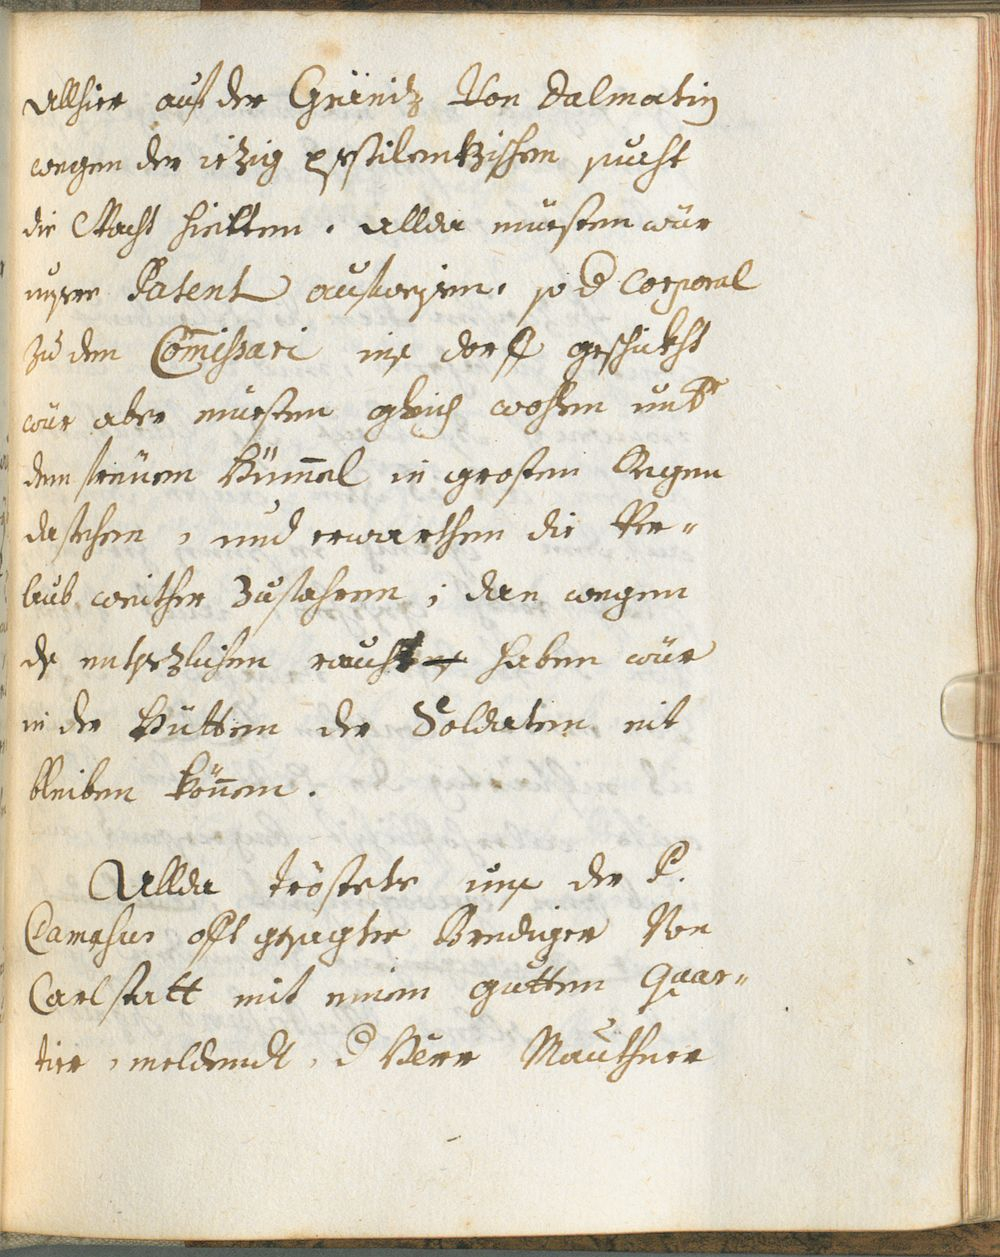 Allhier auf der Gränitz Von Dalmatin
wegen der ietzig pestilentzischen sucht
die Wacht hielten. Allda müesten wür
unsere Patent aufweisen. so d Corporal
zu dem Comissari ins dorff geschickht
wür aber müesten gleich wohlen unter
dem freüen Himel in grosten Regen
da stehen, und erwarthen die Ver-
laub weither Zufahren; dan wegen
des entsezlichen rauch haben wür
in der Hütten der Soldaten nit
bleiben könen.
Allda tröstete uns der P.
Damasus offt gesagter Prediger Von
Carlstatt mit einem gutten Quar-
tier, meldendt, d Herr Mauthner